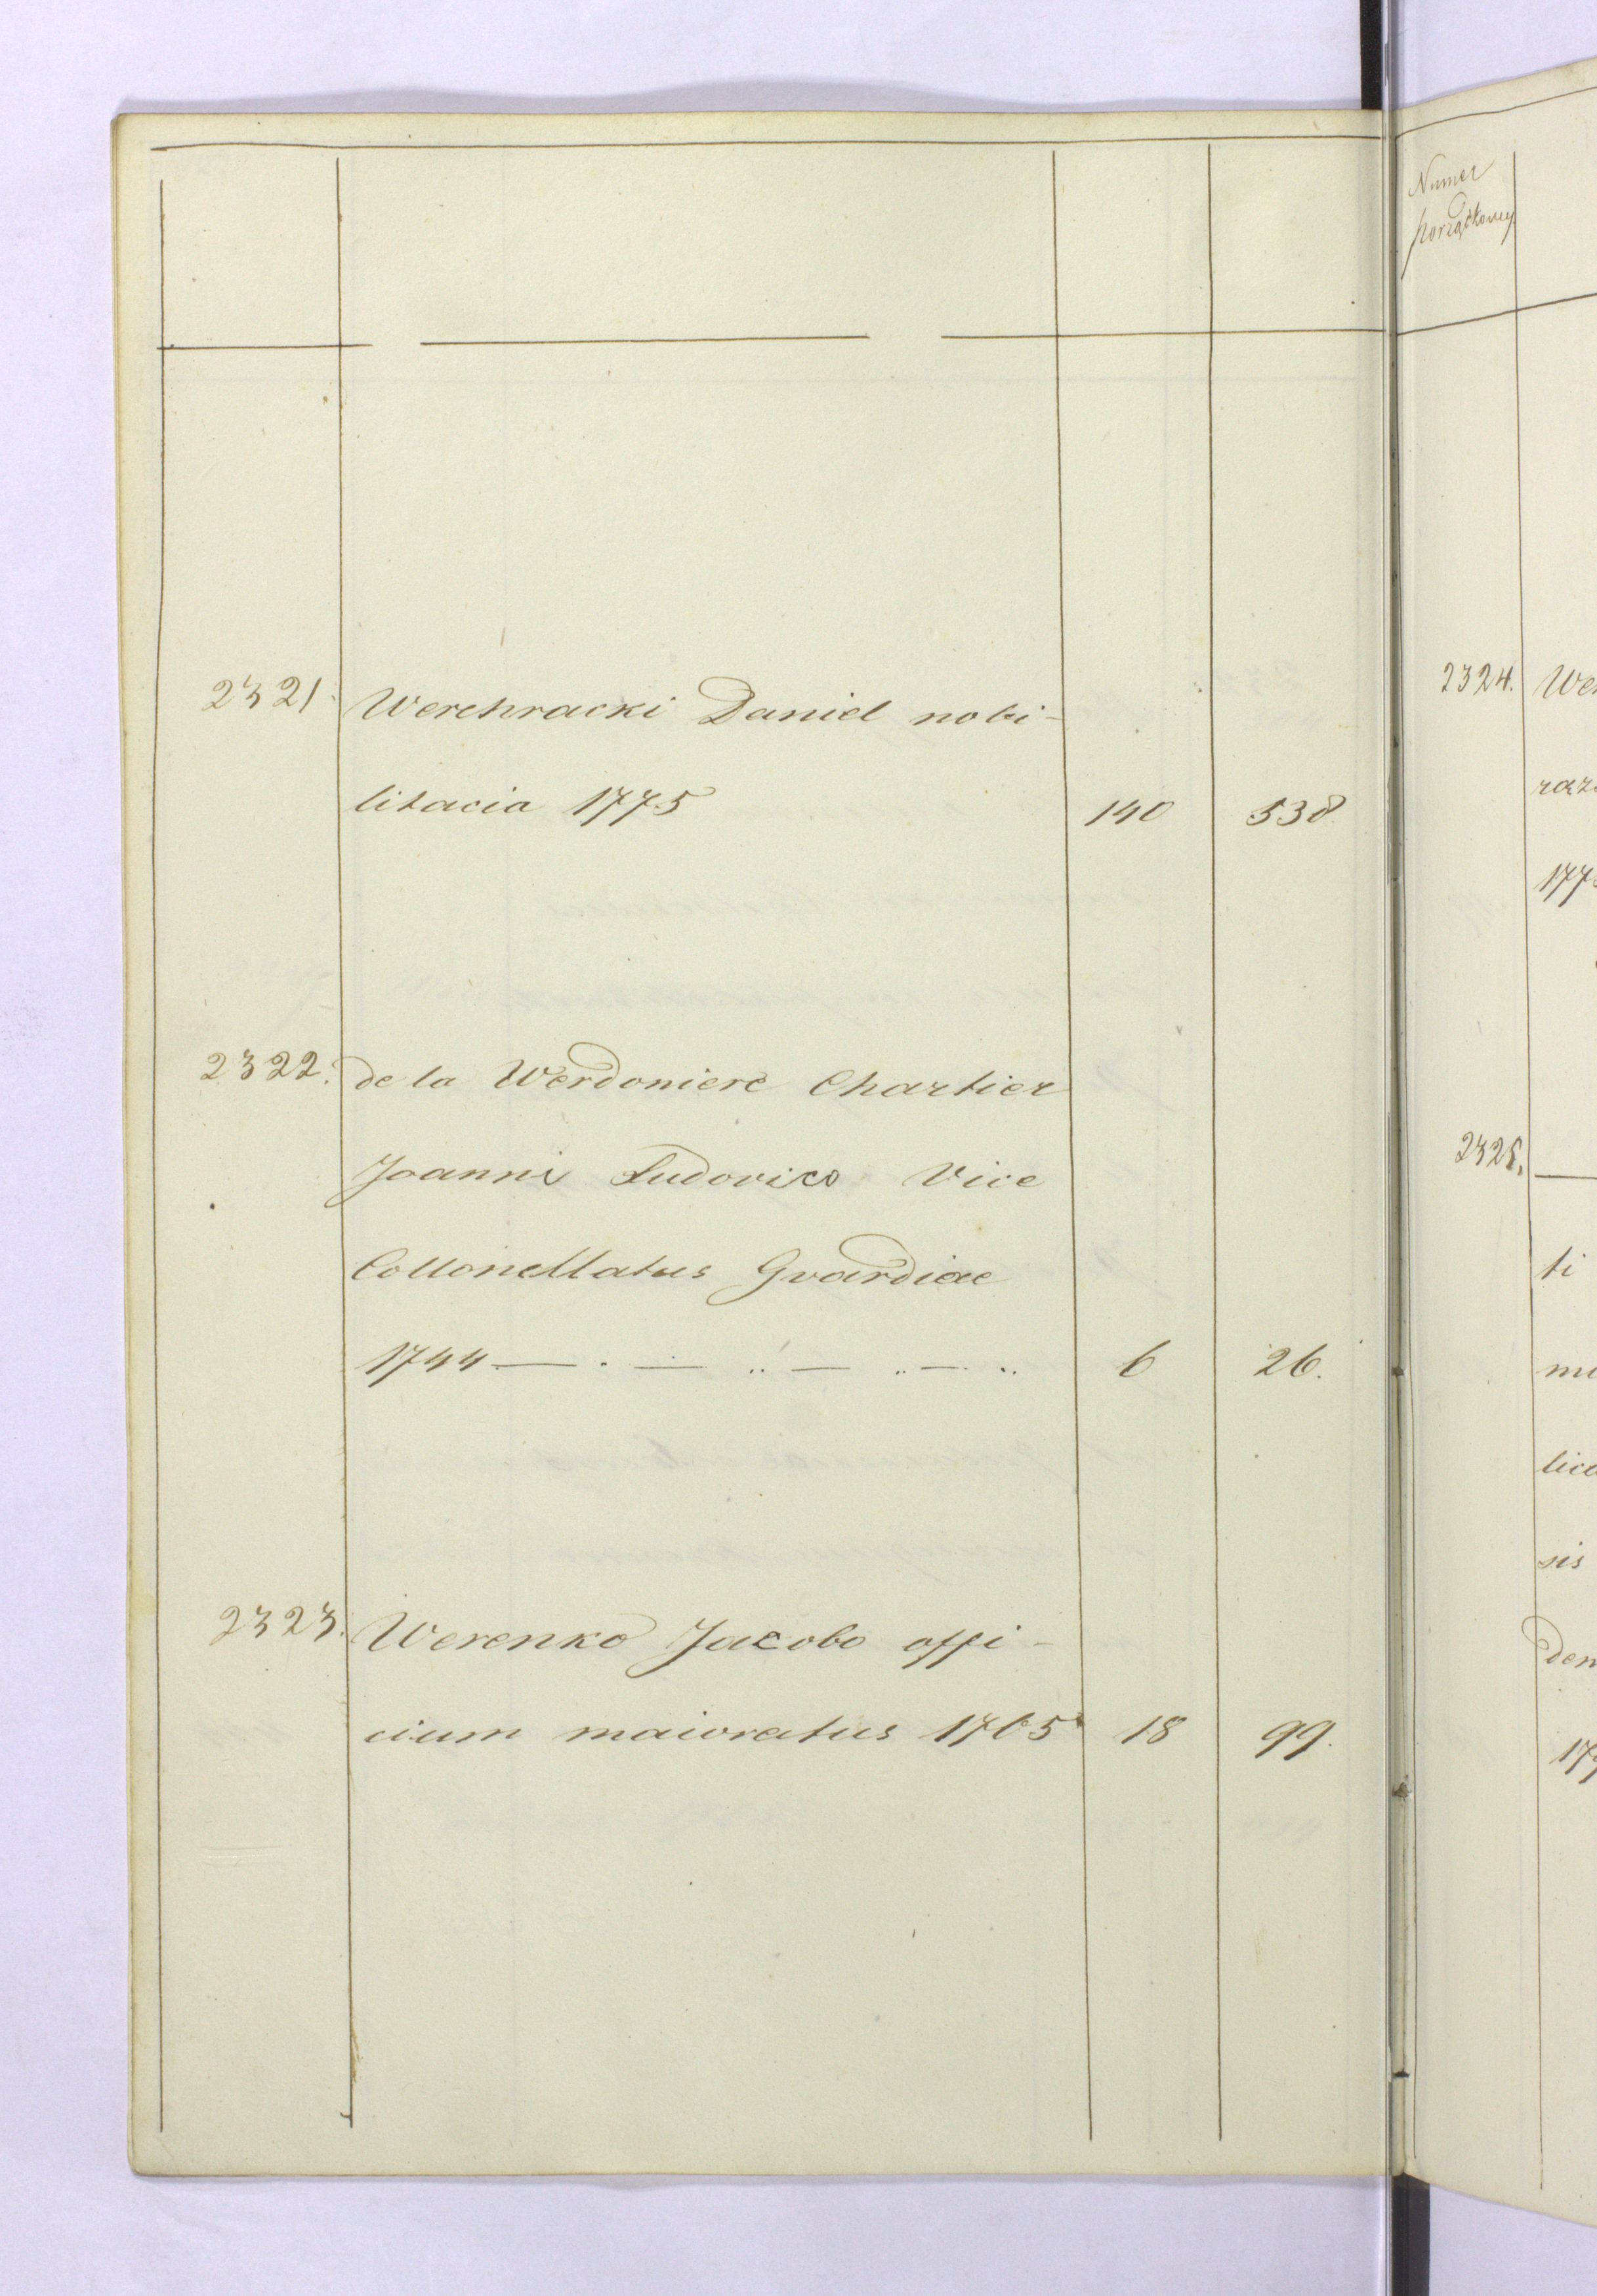 2321. Werchracki Daniel nobi-
litacia 1775 140 538.
2322. de la Werdoniere Chartier
Joanni Ludovico Vice
Collonellatus Gvardiae
1744 — . — .. — .. — .. 6 26.
2323. Werenko Jacobo offi-
cium maioratus 1765 18 99.
Numer
porządkowy
2324. Wer
raz
177
2325. —
ti
mi
lica
sis
den
177